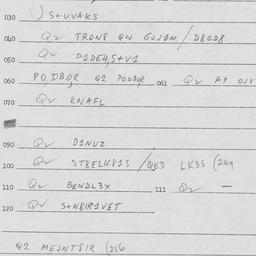 030 ) S+UVAKS
040 Q2 TRON8 QN GUJ1M / D8OD8
050 Q2 P1DE4,S+V1
060 PODBOR Q2 PODBOR 061 Q2 AP
070 Q2 KNAFL
090 Q2 D1NUZ
100 Q2 ST8ELK81S / QED LK3S (249
110 Q2 BENDL3X 111 Q2 —
120 Q2 S+N8IR1VET
Q2 MEJNT8IR (256